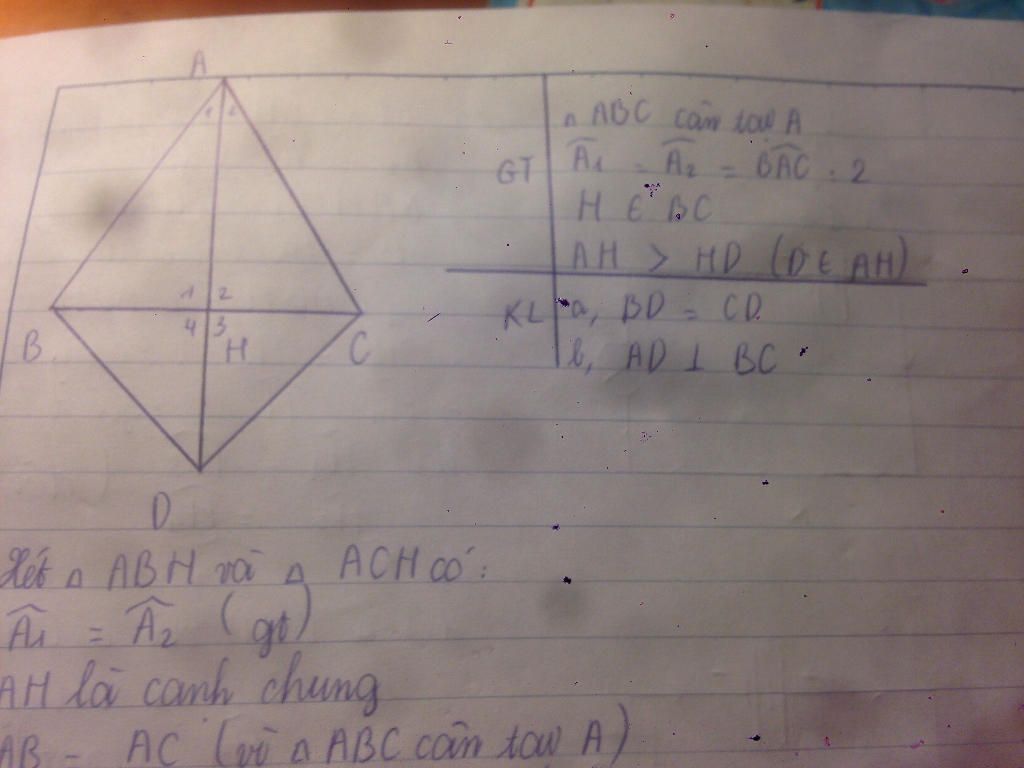 A
1 2
1 2
4 3
B H C
D
GT
△ ABC cân tại A
Â1 = Â2 = BÂC : 2
H ∈ BC
AH > HD (D ∈ AH)
KL a, BD = CD
b, AD ⊥ BC
Xét △ ABH và △ ACH có:
Â1 = Â2 (gt)
AH là cạnh chung
AB = AC (vì △ ABC cân tại A)